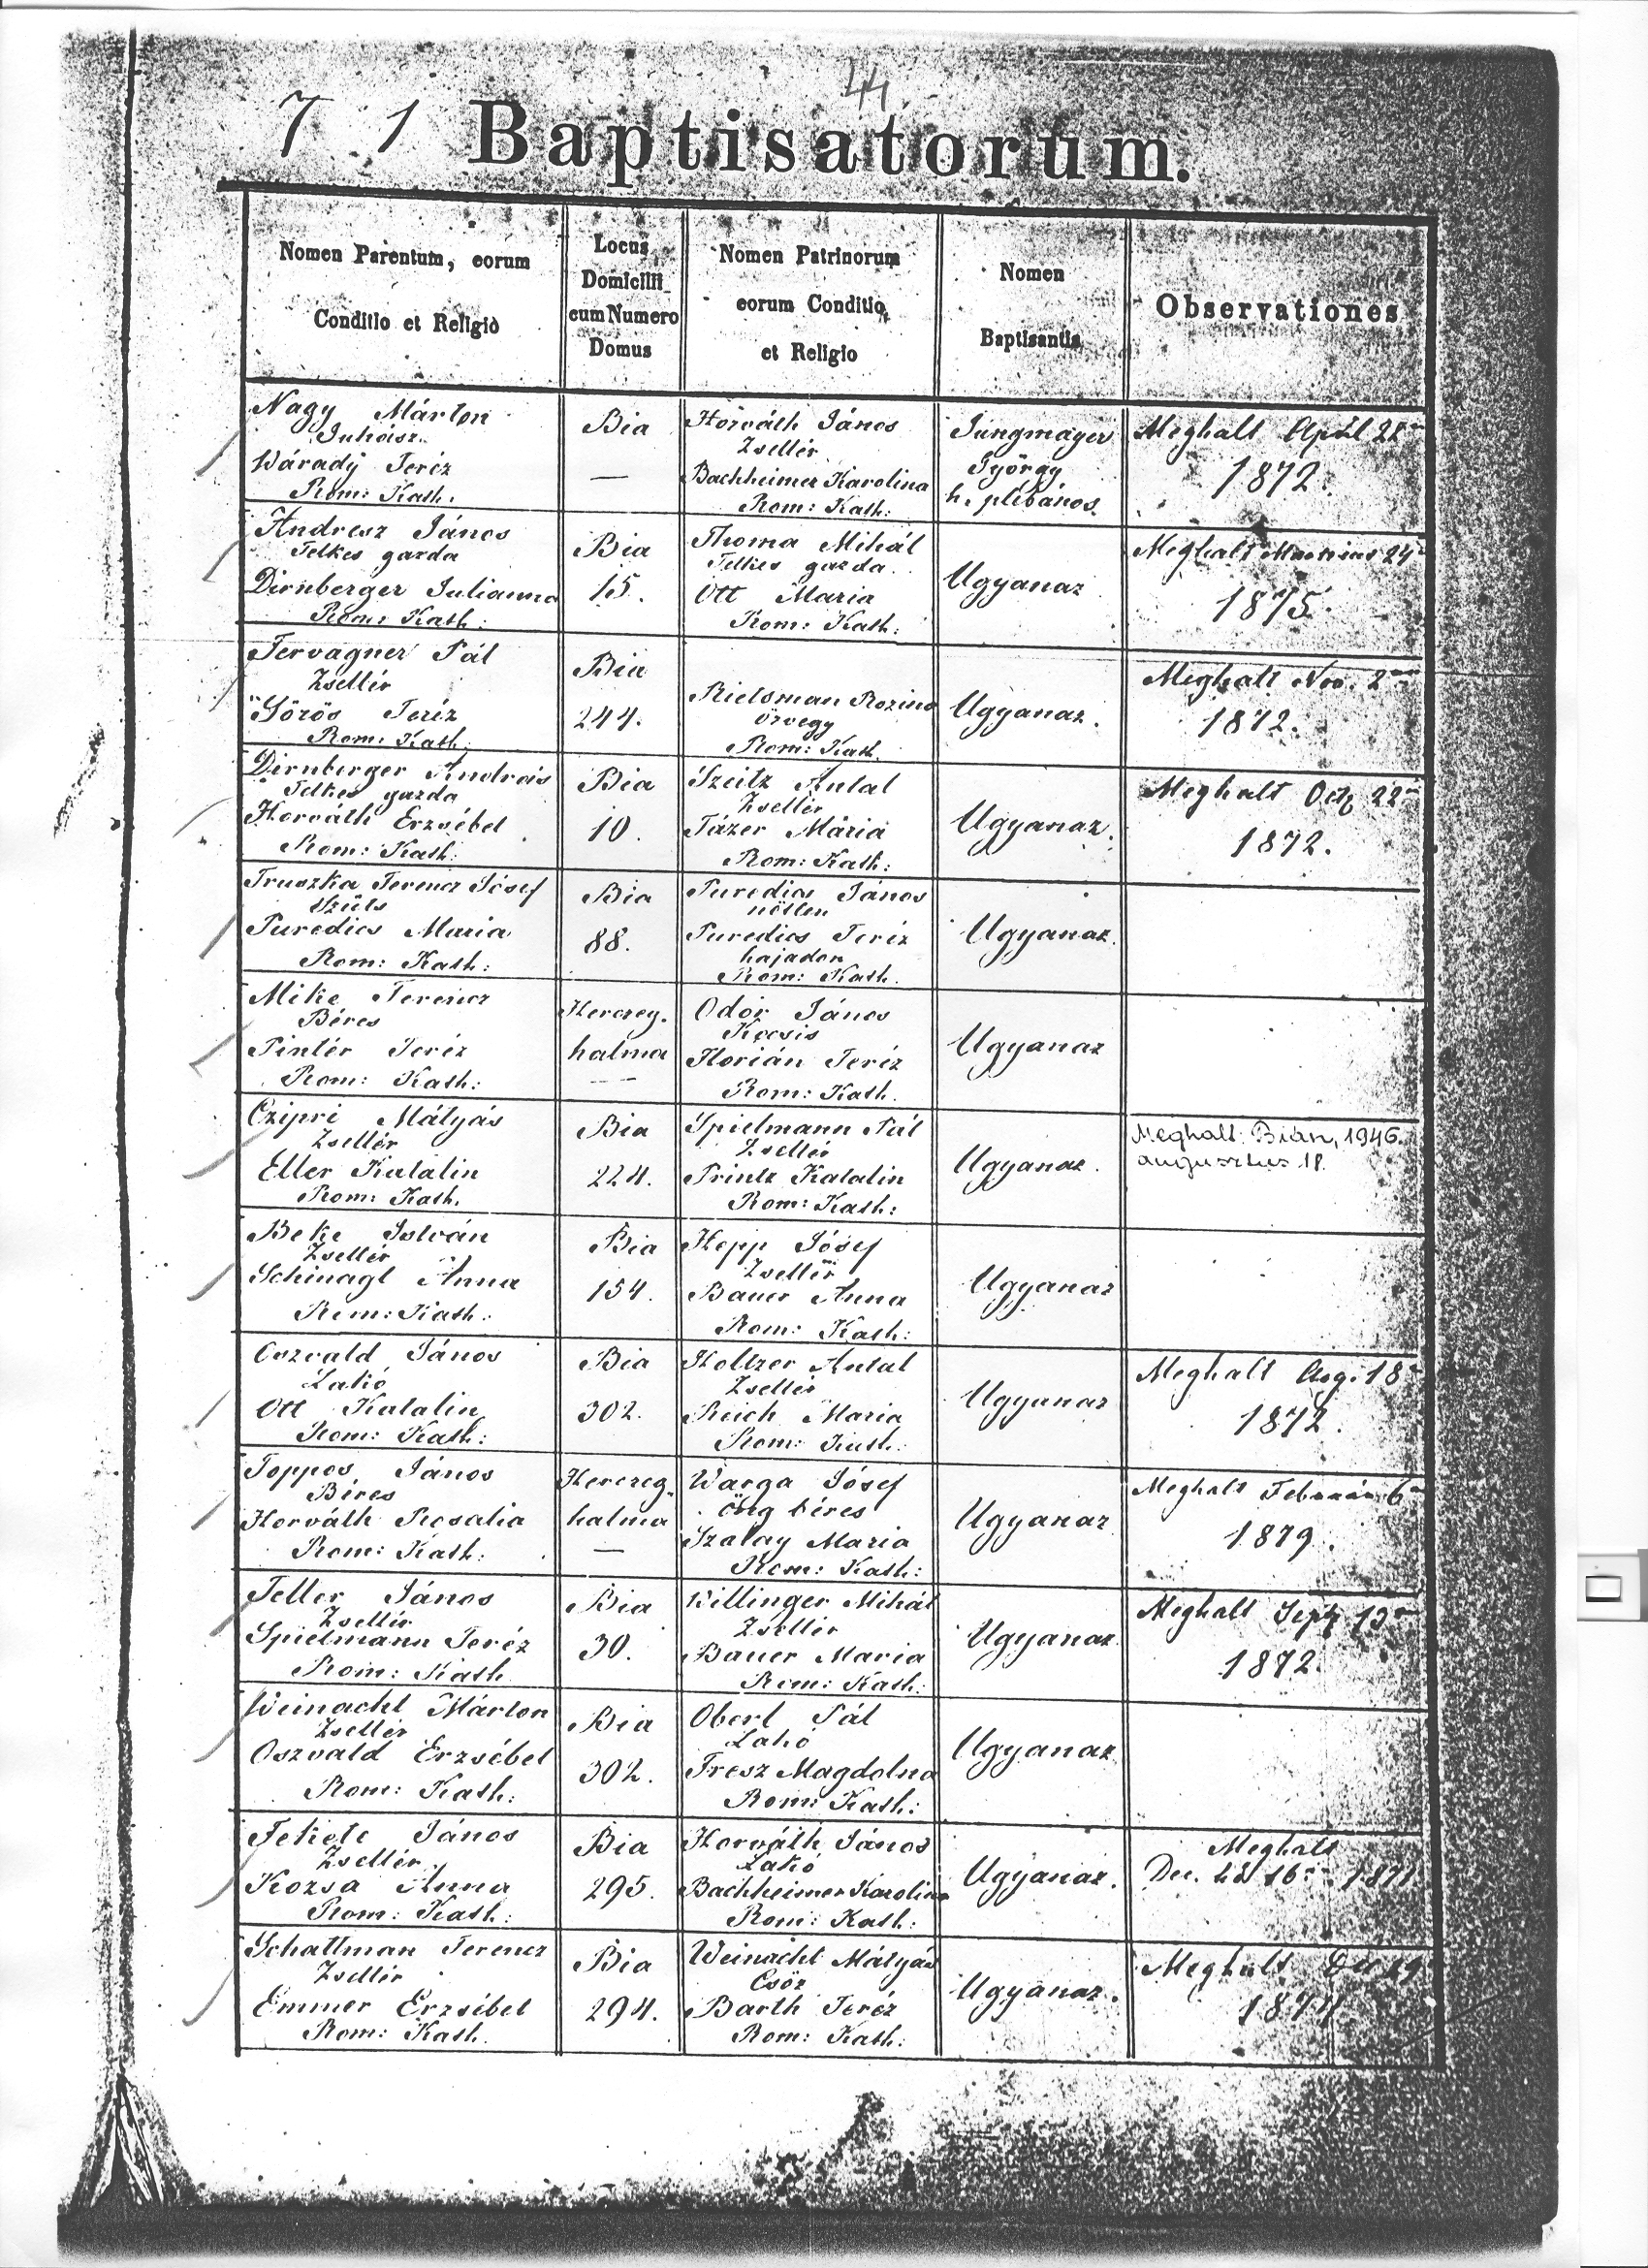 44
7 1 Baptisatorum.
Nomen Parentum, eorum
Conditio et Religio
Locus
Domicilii
cum Numero
Domus
Nomen Patrinorum
eorum Conditio
et Religio
Nomen
Baptisantis
Observationes
Nagy Márton
Juhász
Várady Teréz
Rom: Kath:
Bia
—
Horváth János
Zsellér
Bachheimer Karolina
Rom: Kath:
Jungmayer
György
h. plébános
Meghalt April
1872.
Andresz János
Telkes gazda
Dirnberger Julianna
Rom: Kath:
Bia
15.
Thoma Mihál
Telkes gazda
Ott Maria
Rom: Kath:
Ugyanaz
Meghalt Martius 24
1875.
Pál
Zsellér
Teréz
Rom: Kath:
Bia
244.
Rozina
özvegy
Rom: Kath.
Ugyanaz.
Meghalt Nov. 2
1872.
Dirnberger András
Telkes gazda
Horváth Erzsébet
Rom: Kath:
Bia
10.
Szeitz Antal
Zsellér
Mária
Rom: Kath:
Ugyanaz.
Meghalt Oct. 22
1872.
Truszka Ferencz Jósef
Szűts
Puredics Maria
Rom: Kath:
Bia
88.
Puredics János
nőtlen
Puredics Teréz
hajadon
Rom: Kath.
Ugyanaz.
Mike Ferencz
Béres
Pintér Teréz
Rom: Kath:
Herczeg-
halma
— —
Odor János
Kocsis
Florián Teréz
Rom: Kath.
Ugyanaz
Czipri Mátyás
Zsellér
Eller Katalin
Rom: Kath.
Bia
224.
Spielmann Pál
Zsellér
Printz Katalin
Rom: Kath:
Ugyanaz.
Meghalt: Bián, 1946.
augusztus 18.
Beke István
Zsellér
Schinagl Anna
Rom: Kath:
Bia
154.
Hepp Jósef
Zsellér
Bauer Anna
Rom: Kath:
Ugyanaz
Oszvald János
Lakó
Ott Katalin
Rom: Kath:
Bia
302.
Holtzer Antal
Zsellér
Reich Maria
Rom: Kath:
Ugyanaz
Meghalt Aug. 18
1872.
Toppos János
Béres
Horváth Rosalia
Rom: Kath:
Herczeg-
halma
—
Warga Jósef
Öreg béres
Szalay Maria
Rom: Kath:
Ugyanaz
Meghalt Február 6
1879.
Feller János
Zsellér
Spielmann Teréz
Rom: Kath
Bia
30.
Willinger Mihál
Zsellér
Bauer Maria
Rom: Kath:
Ugyanaz
Meghalt Sept. 13
1872.
Weinacht Márton
Zsellér
Oszvald Erzsébet
Rom: Kath:
Bia
302.
Oberl Pál
Lakó
Fresz Magdolna
Rom: Kath:
Ugyanaz
Fekete János
Zsellér
Kozsa Anna
Rom: Kath:
Bia
295.
Horváth János
Lakó
Bachheimer Karolina
Rom: Kath:
Ugyanaz.
Meghalt
Dec. 1871
Schattman Ferencz
Zsellér
Emmer Erzsébet
Rom: Kath.
Bia
294.
Weinacht Mátyás
Csősz
Barth Teréz
Rom: Kath:
Ugyanaz.
Meghalt